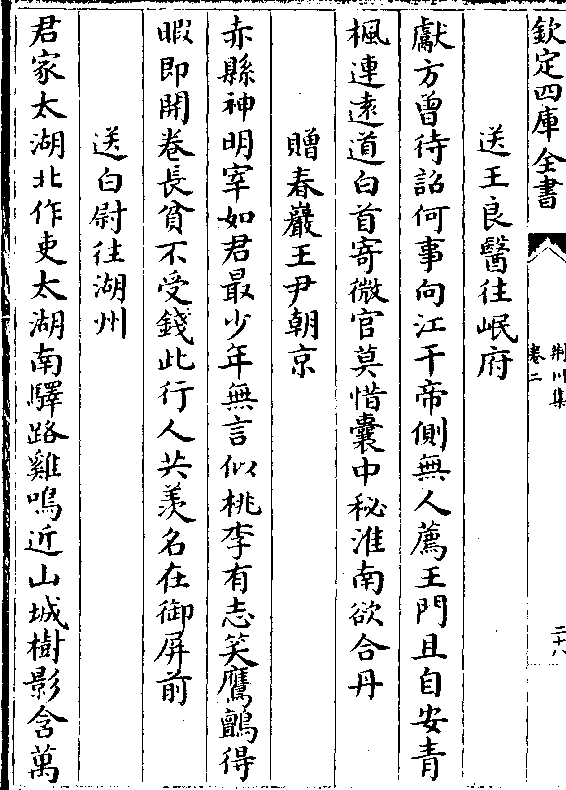 欽定四庫全書
荆川集
卷二
二十八
送王良醫往岷府
獻方曾待詔何事向江干帝側無人薦王門且自安青
楓連遠道白首寄微官莫惜囊中秘淮南欲合丹
贈春巖王尹朝京
赤縣神明宰如君最少年無言似桃李有志笑鷹鸇得
暇即開卷長貧不受錢此行人共羨名在御屏前
送白尉往湖州
君家太湖北作吏太湖南驛路雞鳴近山城樹影含萬